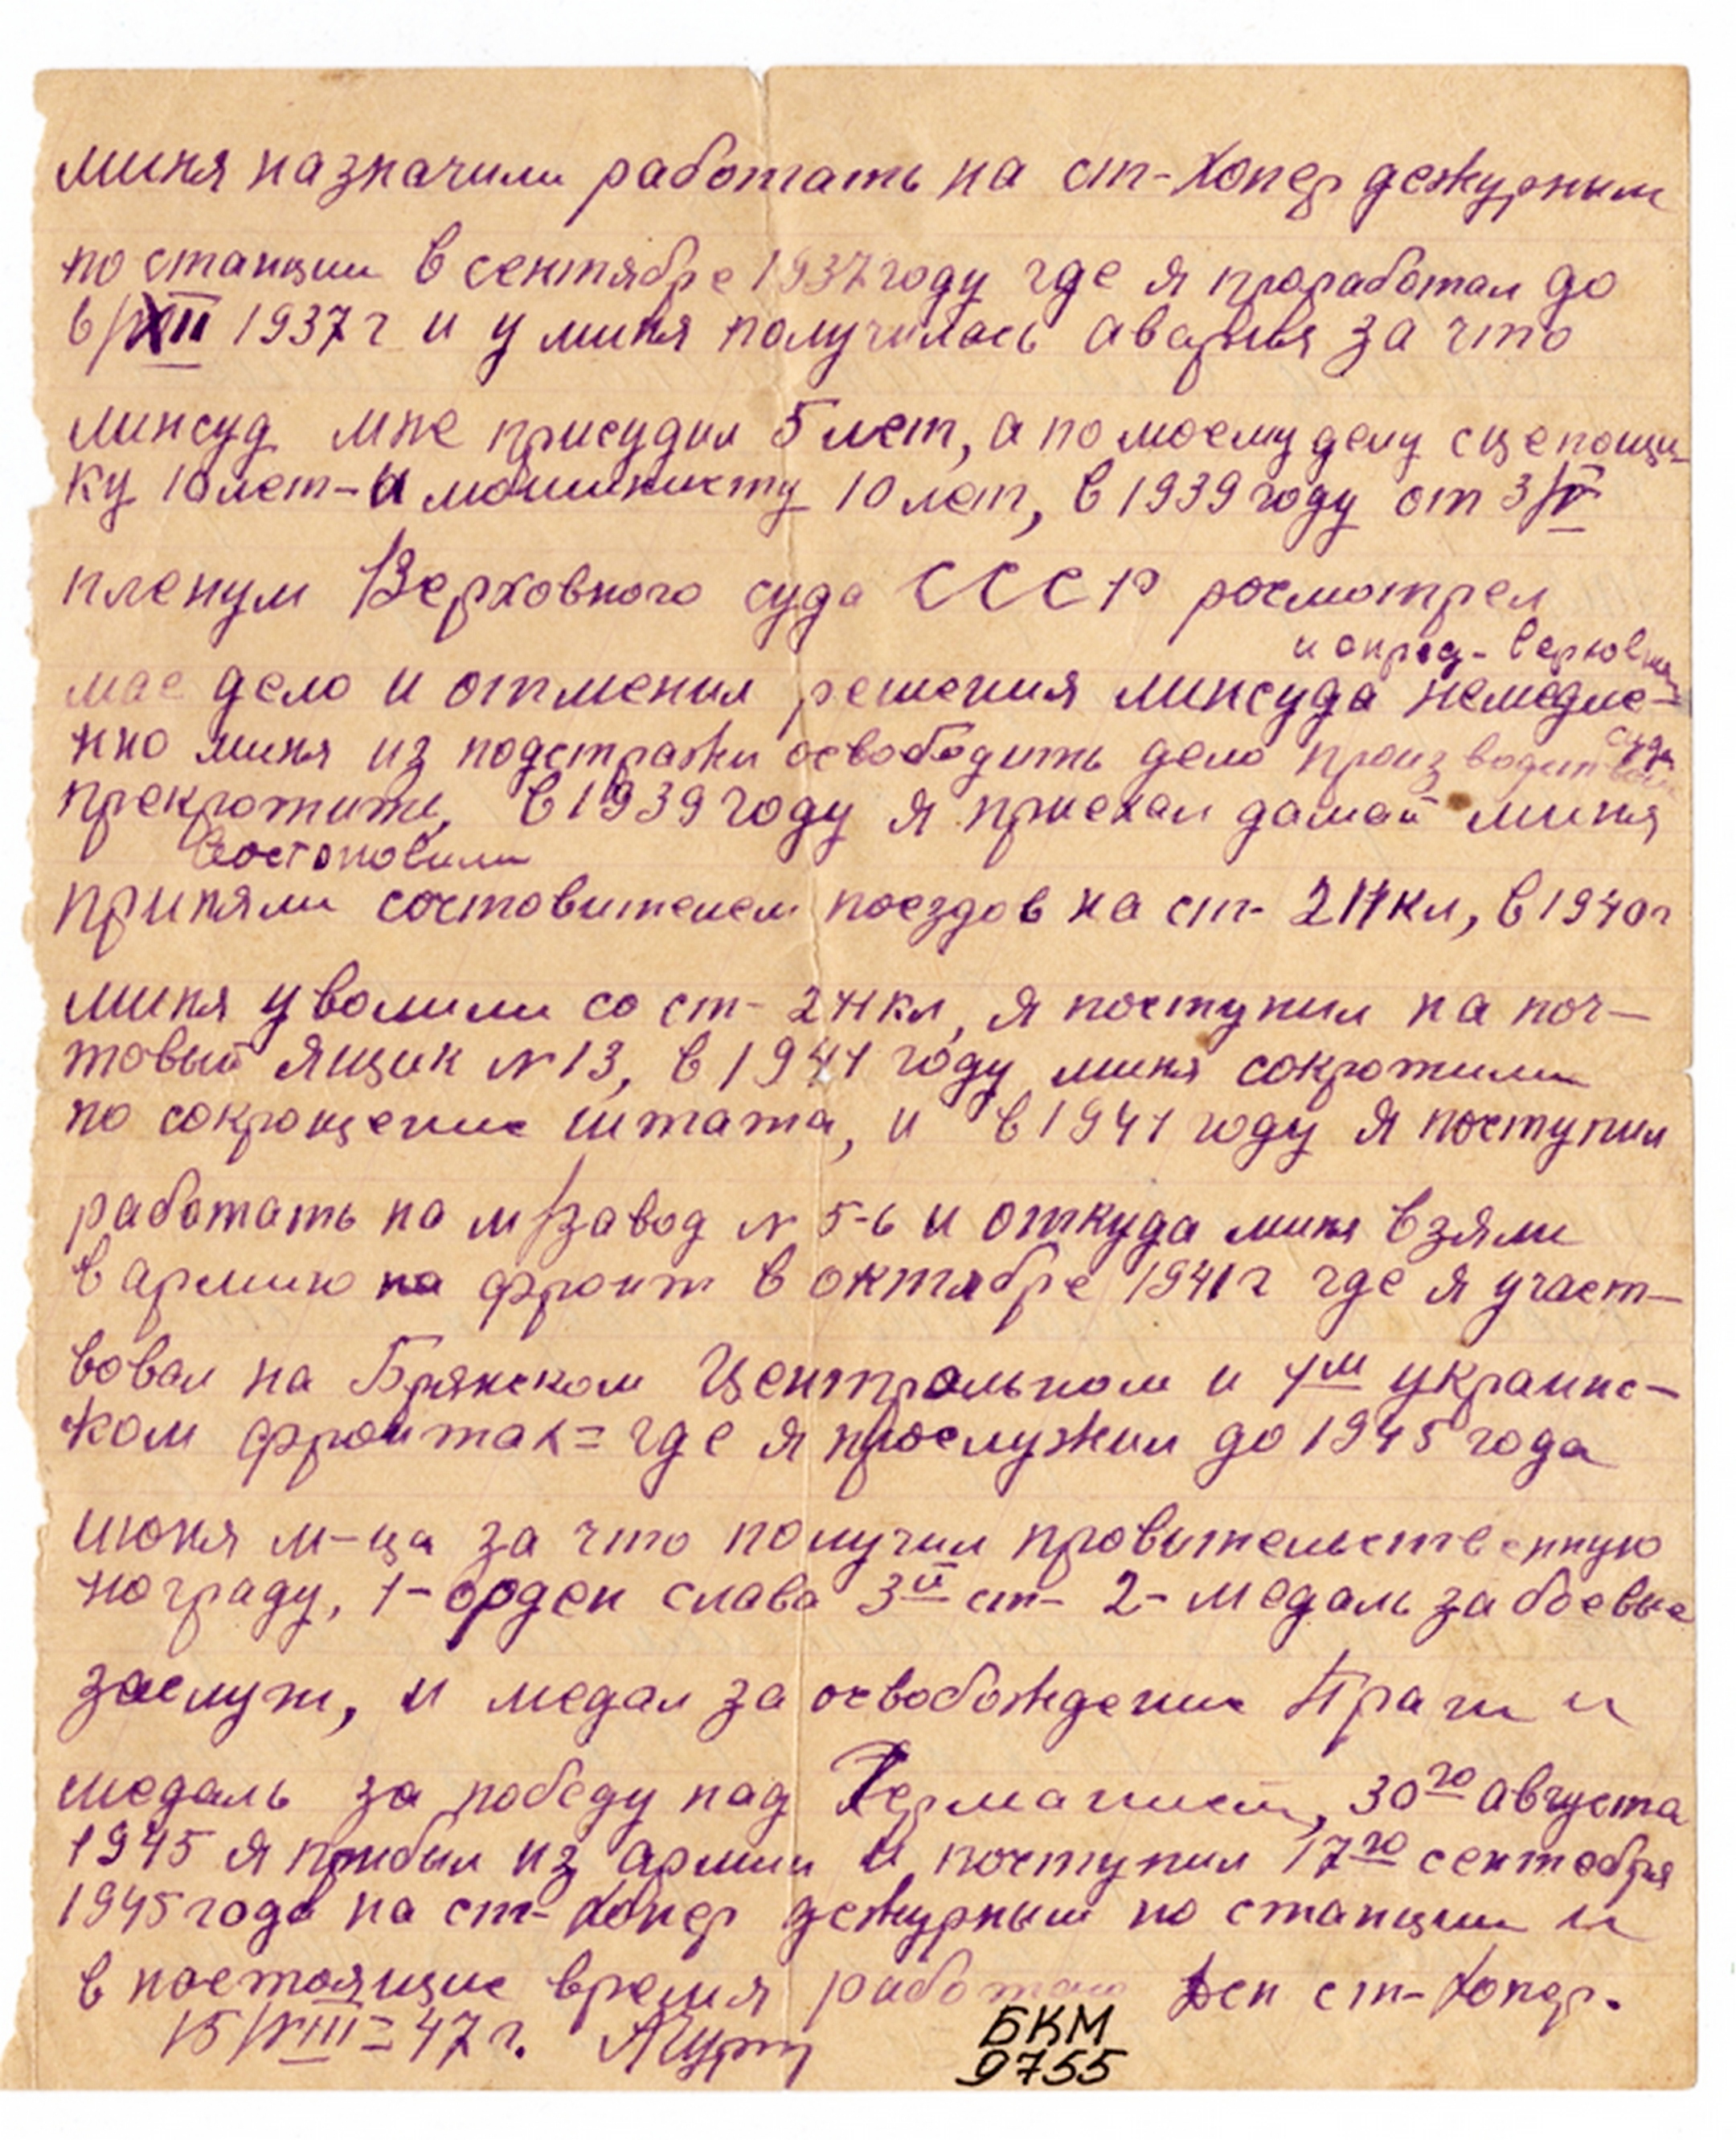 миня назначили работать на ст-Хопер дежурным
по станции в сентябре 1937 году где я проработал до
6/XII 1937 г и у миня получилась аварыя за что
линсуд мне присудил 5 лет, а по моему делу сцепощи-
ку 10 лет-и мошинисту 10 лет, в 1939 году от 3/IV
пленум Верховного суда СССР росмотрел
и опред- Верховна
мае дело и отменил решения линсуда немедле-
суда
нно миня из подстражи освободить дело производством
прекротить, в 1939 году я приехал дамай миня
Востоновили
приняли состовителем поездов на ст- 2Нкл, в 1940г
миня уволили со ст- 2Нкл, я поступил на поч-
товый ящик №13, в 1941 году миня сокротили
по сокрощение штата, и в 1941 году я поступил
работать на м/завод № 5-6 и откуда миня взяли
в армию на фронт в октябре 1941г где я участ-
вовал на Брянском Центрольном и 1м украинс-
ком фронтах= где я прослужил до 1945 года
июня м-ца за что получил провительственную
нограду, 1-орден слава 3й ст- 2-медаль за боевые
заслуги, и медал за освобождение Праги и
медаль за победу над Германией, 30го августа
1945 я прибыл из армии и поступил 17го сентебря
1945 года на ст-Хопер дежурным по станции и
в постоящие время работаю Дсп ст-Хопер.
15/VIII=47 г.
БКМ
9755